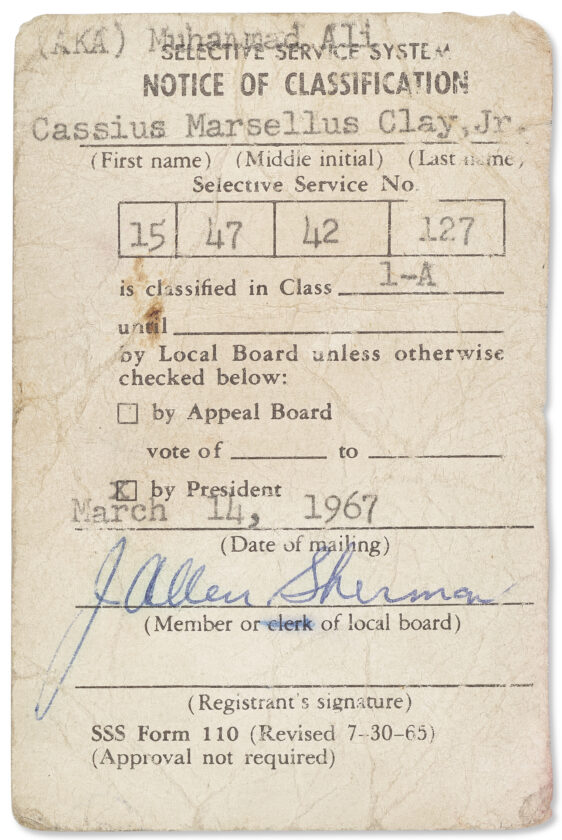 (AKA) Muhammad Ali
SELECTIVE SERVICE SYSTEM
NOTICE OF CLASSIFICATION
Cassius Marsellus Clay,Jr.
(First name) (Middle initial) (Last name)
Selective Service No.
15 47 42 127
is classified in Class 1-A
until
by Local Board unless otherwise
checked below:
☐ by Appeal Board
vote of to
☒ by President
March 14, 1967
(Date of mailing)
J Allen Sherman
(Member or clerk of local board)
(Registrant's signature)
SSS Form 110 (Revised 7-30-65)
(Approval not required)